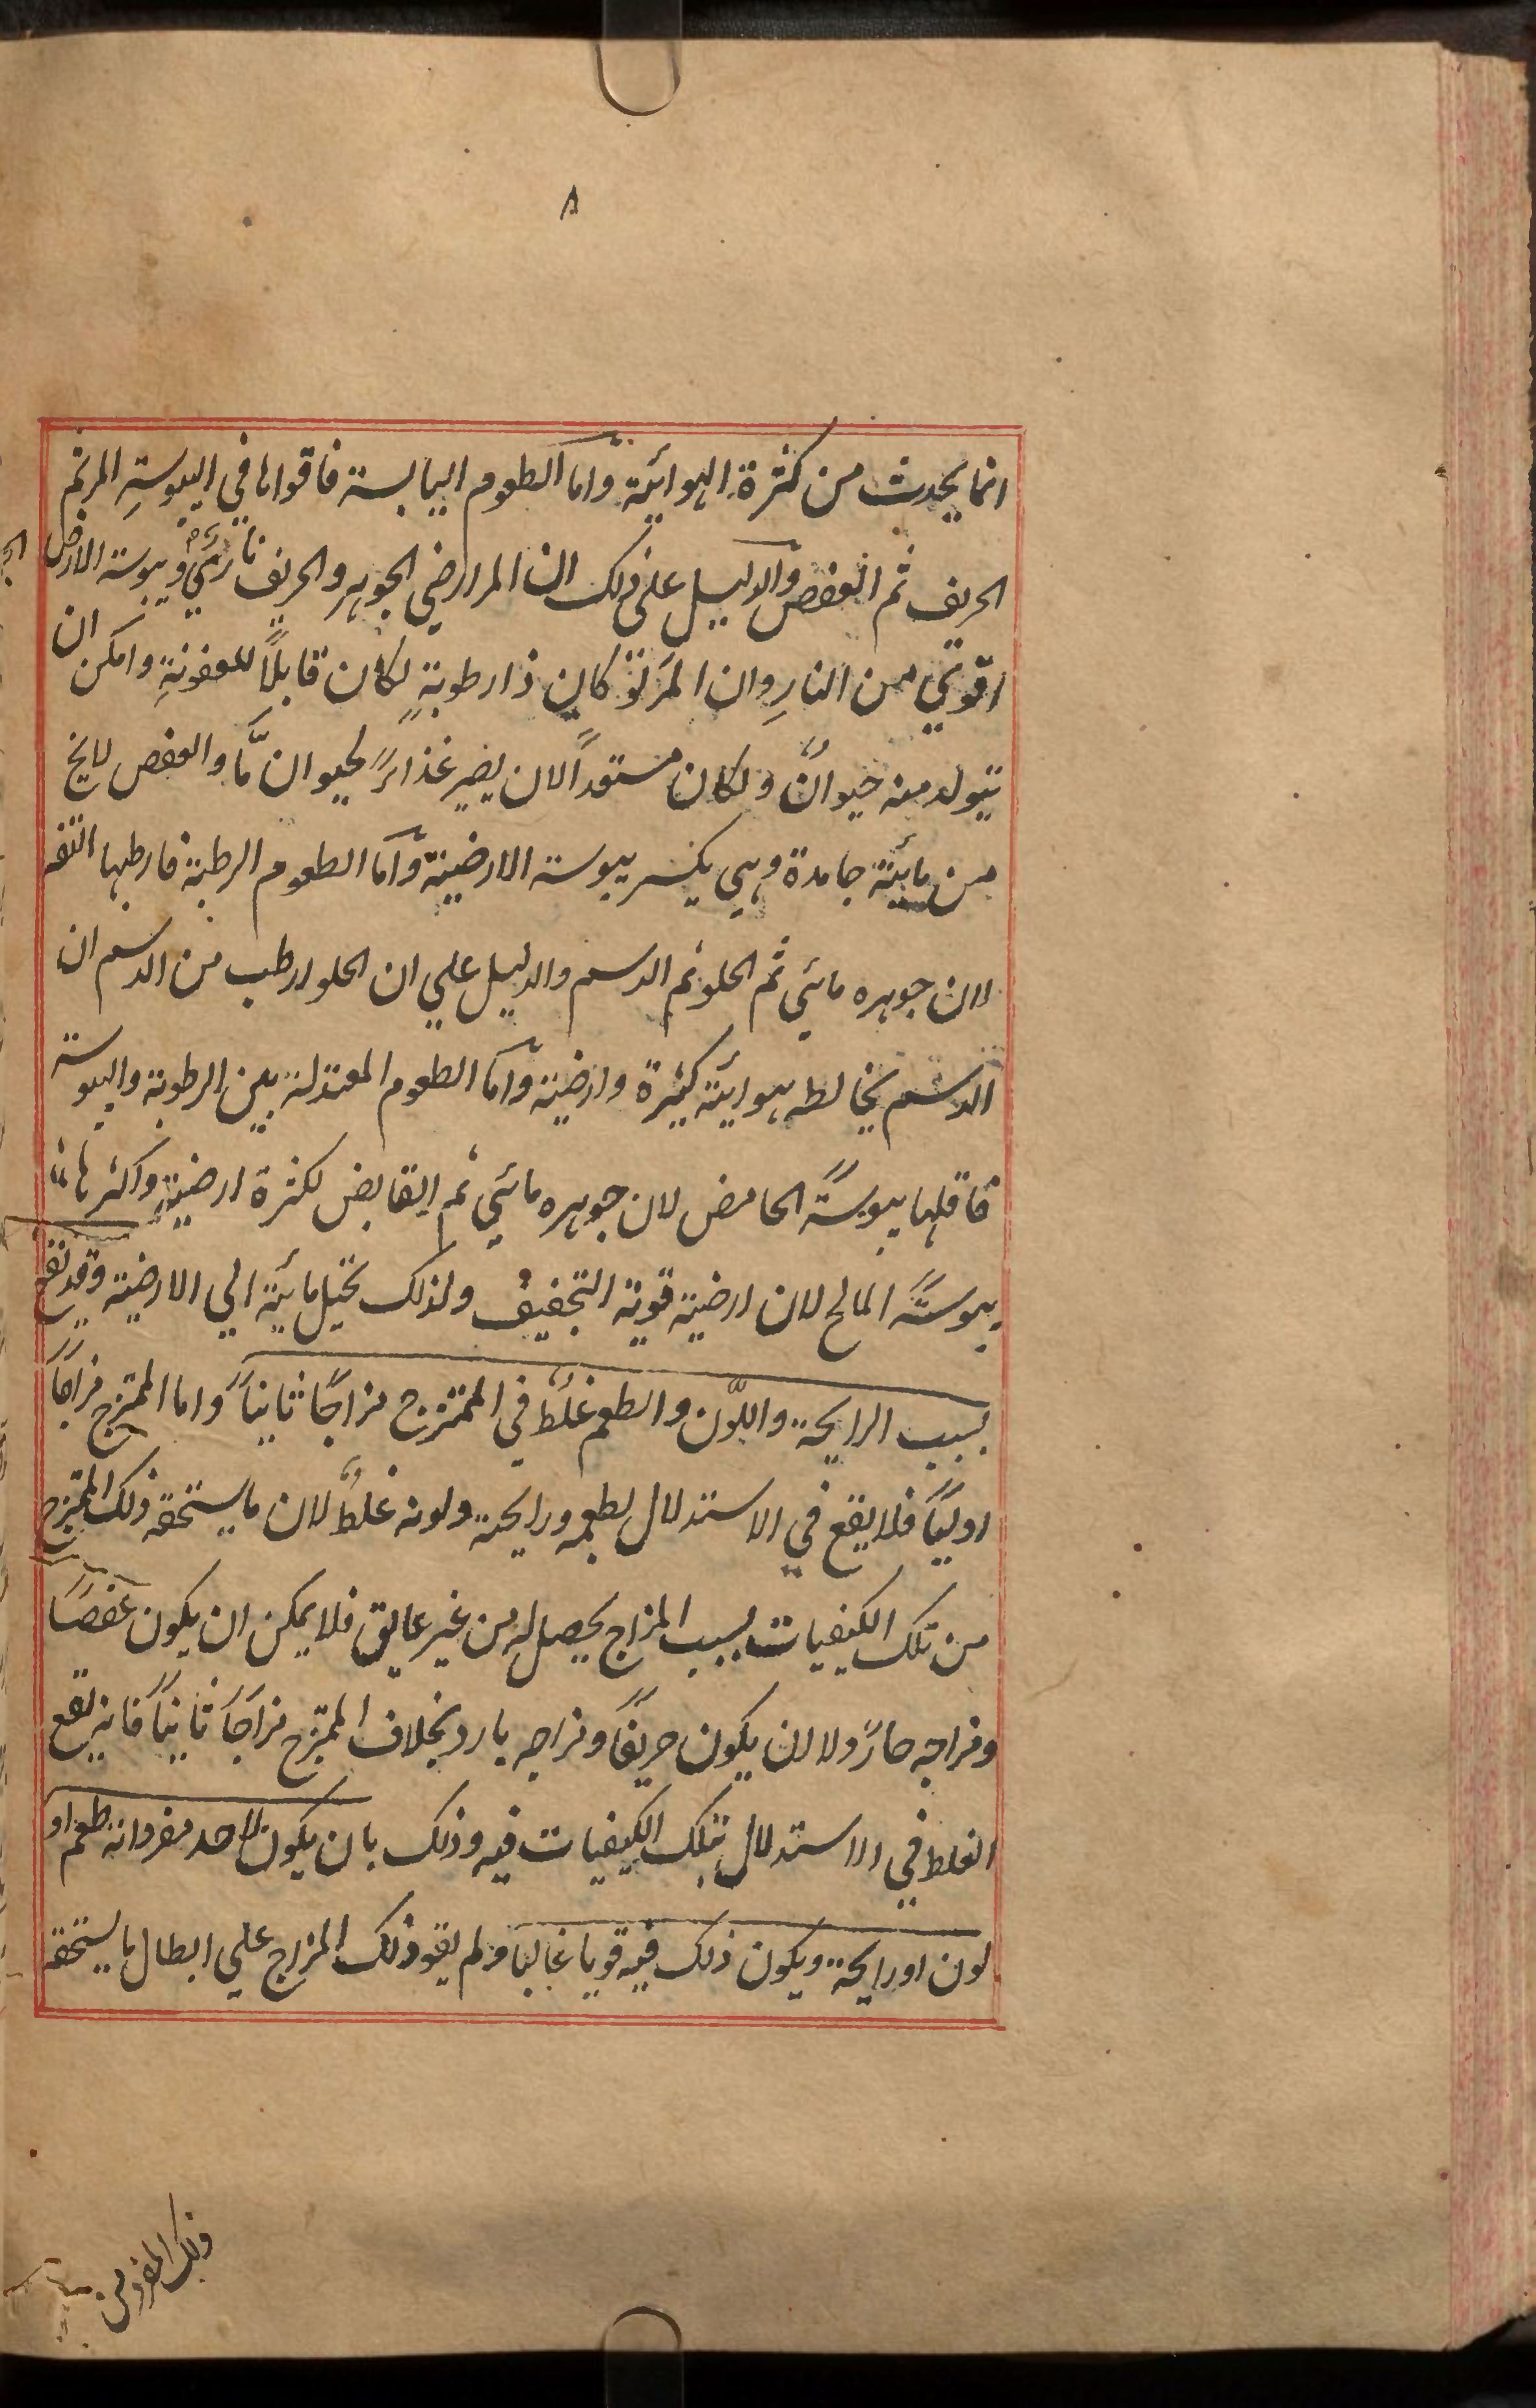 ٨
انما يحدث من كثرة الهوائية واما الطعوم اليابسة فاقواها في اليبوسةِ المر ثم
الحريف ثم العفص والدليل على ذلك ان المر ارضي الجوهر والحريف ناريٌ ويبوسة الارض
اقوي من النارِ وان المرَ لو كان ذا رطوبةٍ لكان قابلاً للعفونةِ وامكن ان
يتولد منه حيوانٌ ولكان مستعداً لان يصير غذاءً لحيوان مَّا والعفص لا يخ
من مائية جامدة وهي يكسر يبوسة الارضية واما الطعوم الرطبة فارطبها التفه
لان جوهره مائي ثم الحلو ثم الدسم والدليل علي ان الحلو ارطب من الدسم ان
الدسم يخالطه هوائية كثيرة وارضية واما الطعوم المعتدلة بين الرطوبة واليبوسة
فاقلها يبوسةً الحامض لان جوهره مائي ثم القابض لكثرة ارضيةٍ واكثرها
يبوسةً المالح لان ارضية قوية التجفيف ولذلك تحيل مائية الي الارضية وقد يقع
بسبب الرايحة واللّون والطعم غلطٌ في الممتزج مزاجًا ثانياً واما الممتزج مزاجًا
اوليًا فلا يقع في الاستدلال بطعمه ورايحته ولونه غلطٌ لان ما يستحقه ذلك الممتزج
من تلك الكيفيات بسبب المزاج يحصل له من غير عايق فلا يمكن ان يكون عفصًا
ومزاجه حارً ولا ان يكون حريفًا ومزاجه بارد بخلاف الممتزج مزاجًا ثانيًا فانه يقع
الغلط في الاستدلال بتلك الكيفيات فيه وذلك بان يكون لاحد مفرداته طعم او
لون او رايحة ويكون ذلك فيه قويا غالبا ولم يقو ذلك المزاج علي ابطال ما يستحقه
ذلك المفرد من